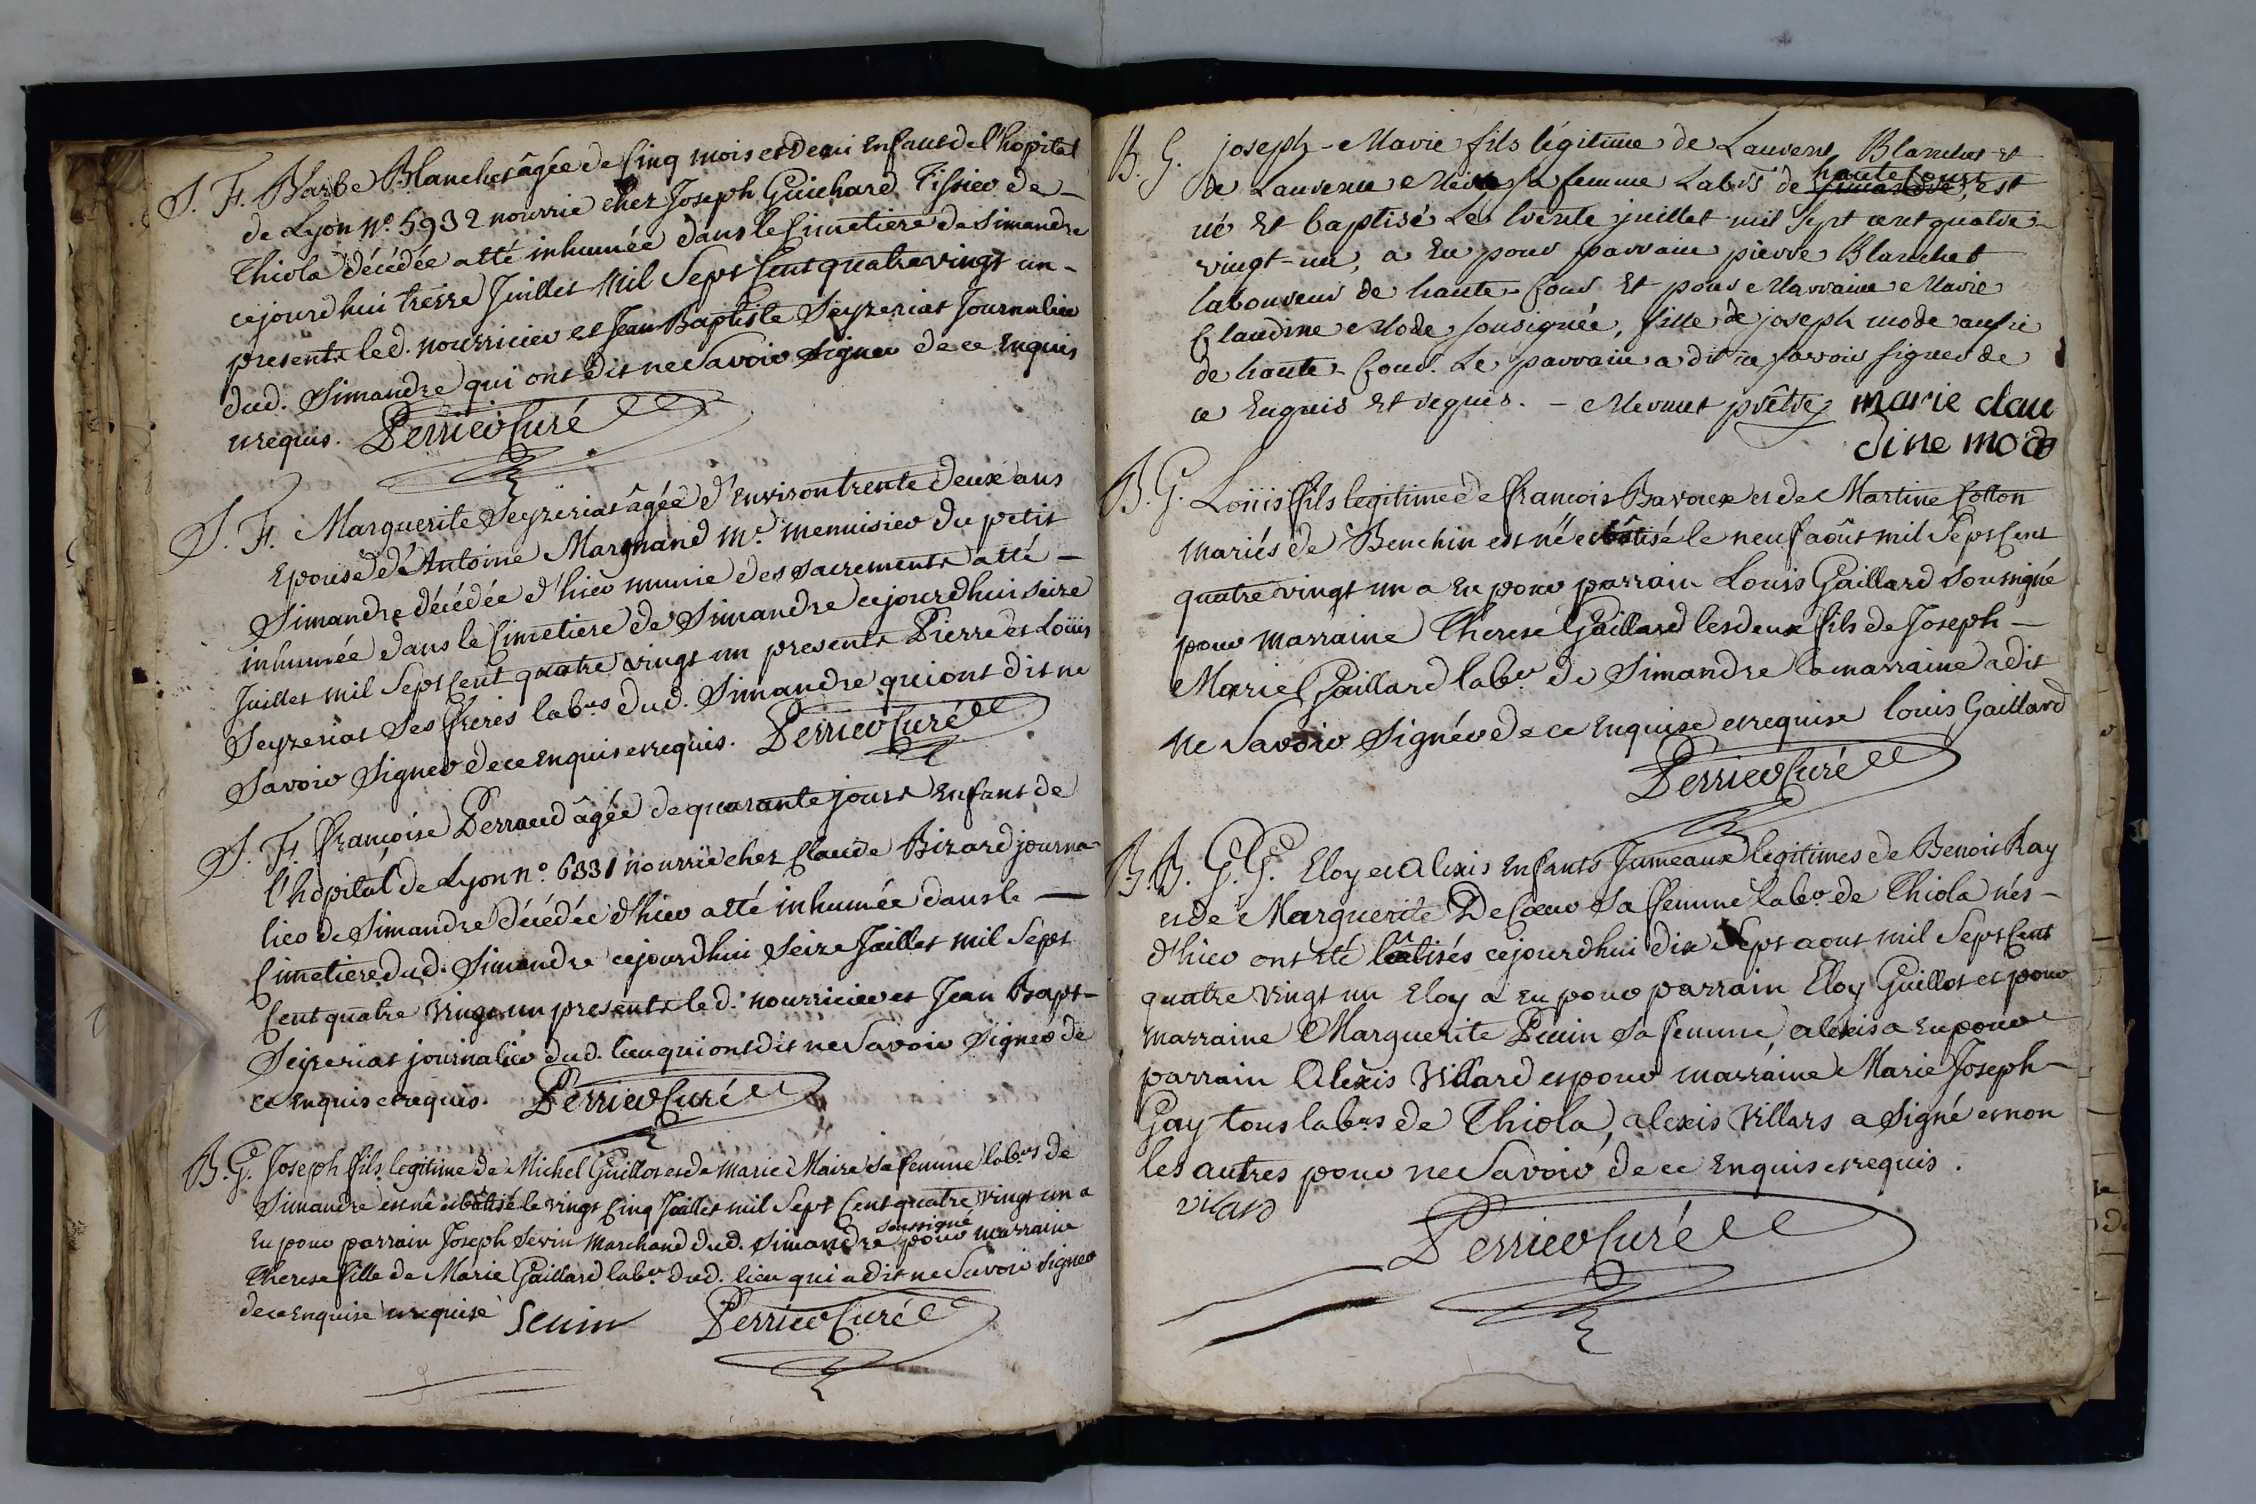 S. F. Barbe Blanchet âgée de Cinq mois et Demi Enfant de l'hopital
de Lyon n.° 5932 nourrie chez Joseph Guichard Tissier de
Thiola décédée a été inhumée dans le Cimetiere de Simandre
cejourdhui treize Juillet Mil Sept Cent quatre vingt un
presents led. nourricier et Jean Baptiste Seyzeriat Journalier
dud. Simandre qui ont dit ne Savoir Signer de ce Enquis
et requis. Perrier Curé
S. F. Marguerite Seyzeriat âgée d'Environ trente Deux ans
Epouse d'Antoine Margnand m.e menuisier du petit
Simandre décédée d'hier munie des sacrements a été
inhumée dans le Cimetiere de Simandre cejourdhui seize
Juillet mil Sept Cent quatre vingt un presents Pierre et Loüis
Seyzeriat Ses freres lab.rs dud. Simandre qui ont dit ne
Savoir Signer de ce Enquis et requis. Perrier Curé
S. F. françoise Perraud âgée de quarante jours Enfant de
l'hôpital de Lyon n.° 6331 nourrie chez Claude Bizard journa
lier de Simandre décédée d'hier a été inhumée dans le
Cimetiere dud. Simandre cejourdhui Seize Juillet mil Sept
Cent quatre vingt un presents led. nourricier et Jean Bapt
Seyzeriat journalier dud. lieu qui ont dit ne Savoir Signer de
ce Enquis et requis. Perrier Curé
B. G. Joseph fils legitime de Michel Guillot et de Marie Maire Sa femme lab.rs de
Simandre est né et bâtisé le vingt Cinq Juillet mil Sept Cent quatre vingt un a
Eu pour parrain Joseph Sevin Marchand dud. Simandre soussigné pour marraine
Therese fille de Marie Gaillard lab.r dud. lieu qui a dit ne Savoir Signer
de ce Enquise et requise Sevin Perrier Curé
B. G. joseph-Marie fils légitime de Laurent Blanchet et
de Laurence sa femme Lab.rs de haute Cour Simandre, est
né Et baptisé Le trente juillet mil Sept cent quatre
vingt-un, a Eu pour parrain pierre Blanchet
laboureur de haute-Cour Et pour Marraine Marie
Claudine Mode sousignée, fille de joseph mode aussi
de haute-Cour. Le parrain a dit ne savoir signer de
ce Enquis Et requis. - Mermet prêtre marie clau
dine mode
B. G. Loüis fils legitime de francois Bavoux et de Martine Cotton
mariés de Benchin est né et bâtisé le neuf août mil Sept Cent
quatre vingt un a Eu pour parrain Louis Gaillard Soussigné
pour marraine Therese Gaillard les deux fils de Joseph
Marie Gaillard lab.r de Simandre la marraine a dit
ne Savoir Signér de ce Enquise et requise louis Gaillard
Perrier Curé
B. B. G. G. Eloy et Alexis Enfants Jumeaux legitimes de Benoit Ray
et de Marguerite DeCœur Sa femme lab.r de Thiola nés
d'hier ont été bâtisés cejourdhui dix Sept aout mil Sept Cent
quatre vingt un Eloy a Eu pour parrain Eloy Guillot et pour
marraine Marguerite Pauin Sa femme, alexis a Eu pour
parrain Alexis Villard et pour marraine Marie Joseph
Gay tous lab.rs de Thiola, alexis Villars a Signé et non
les autres pour ne Savoir de ce Enquis et requis.
vilard
Perrier Curé